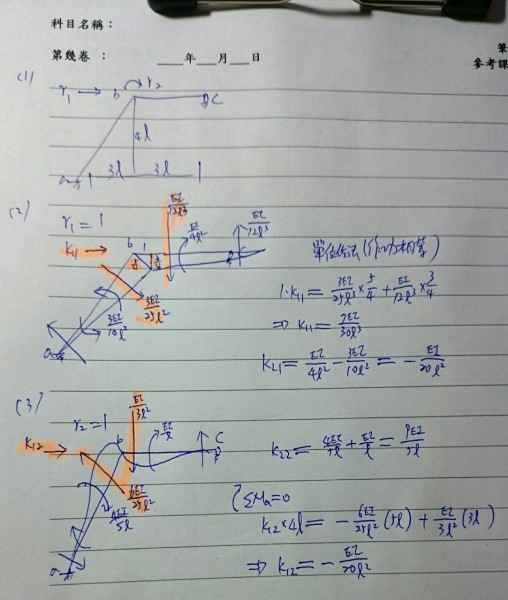 科目名稱：
第幾卷 ： ___年___月___日
筆
參考課
(1)
r₁ → b r₂ C
4l
a 3l 3l
(2)
r₁=1
K₁₁
b 1
EI/12l³
EI/4l²
EI/12l³
3EI/25l³
3EI/10l²
a
單位位法(作功相等)
1·K₁₁= 3EI/25l³ × 5/4 + EI/12l³ × 3/4
⇒ K₁₁=
K₂₁= EI/4l² - 3EI/10l² = - EI/20l²
(3)
r₂=1
K₁₂
b
EI/3l²
EI/l
C
6EI/25l²
4EI/5l
a
K₂₂ = 4EI/5l + EI/l = 9EI/5l
ΣMa=0
K₁₂×4l = - 6EI/25l² (5l) + EI/3l² (3l)
⇒ K₁₂ = - EI/20l²